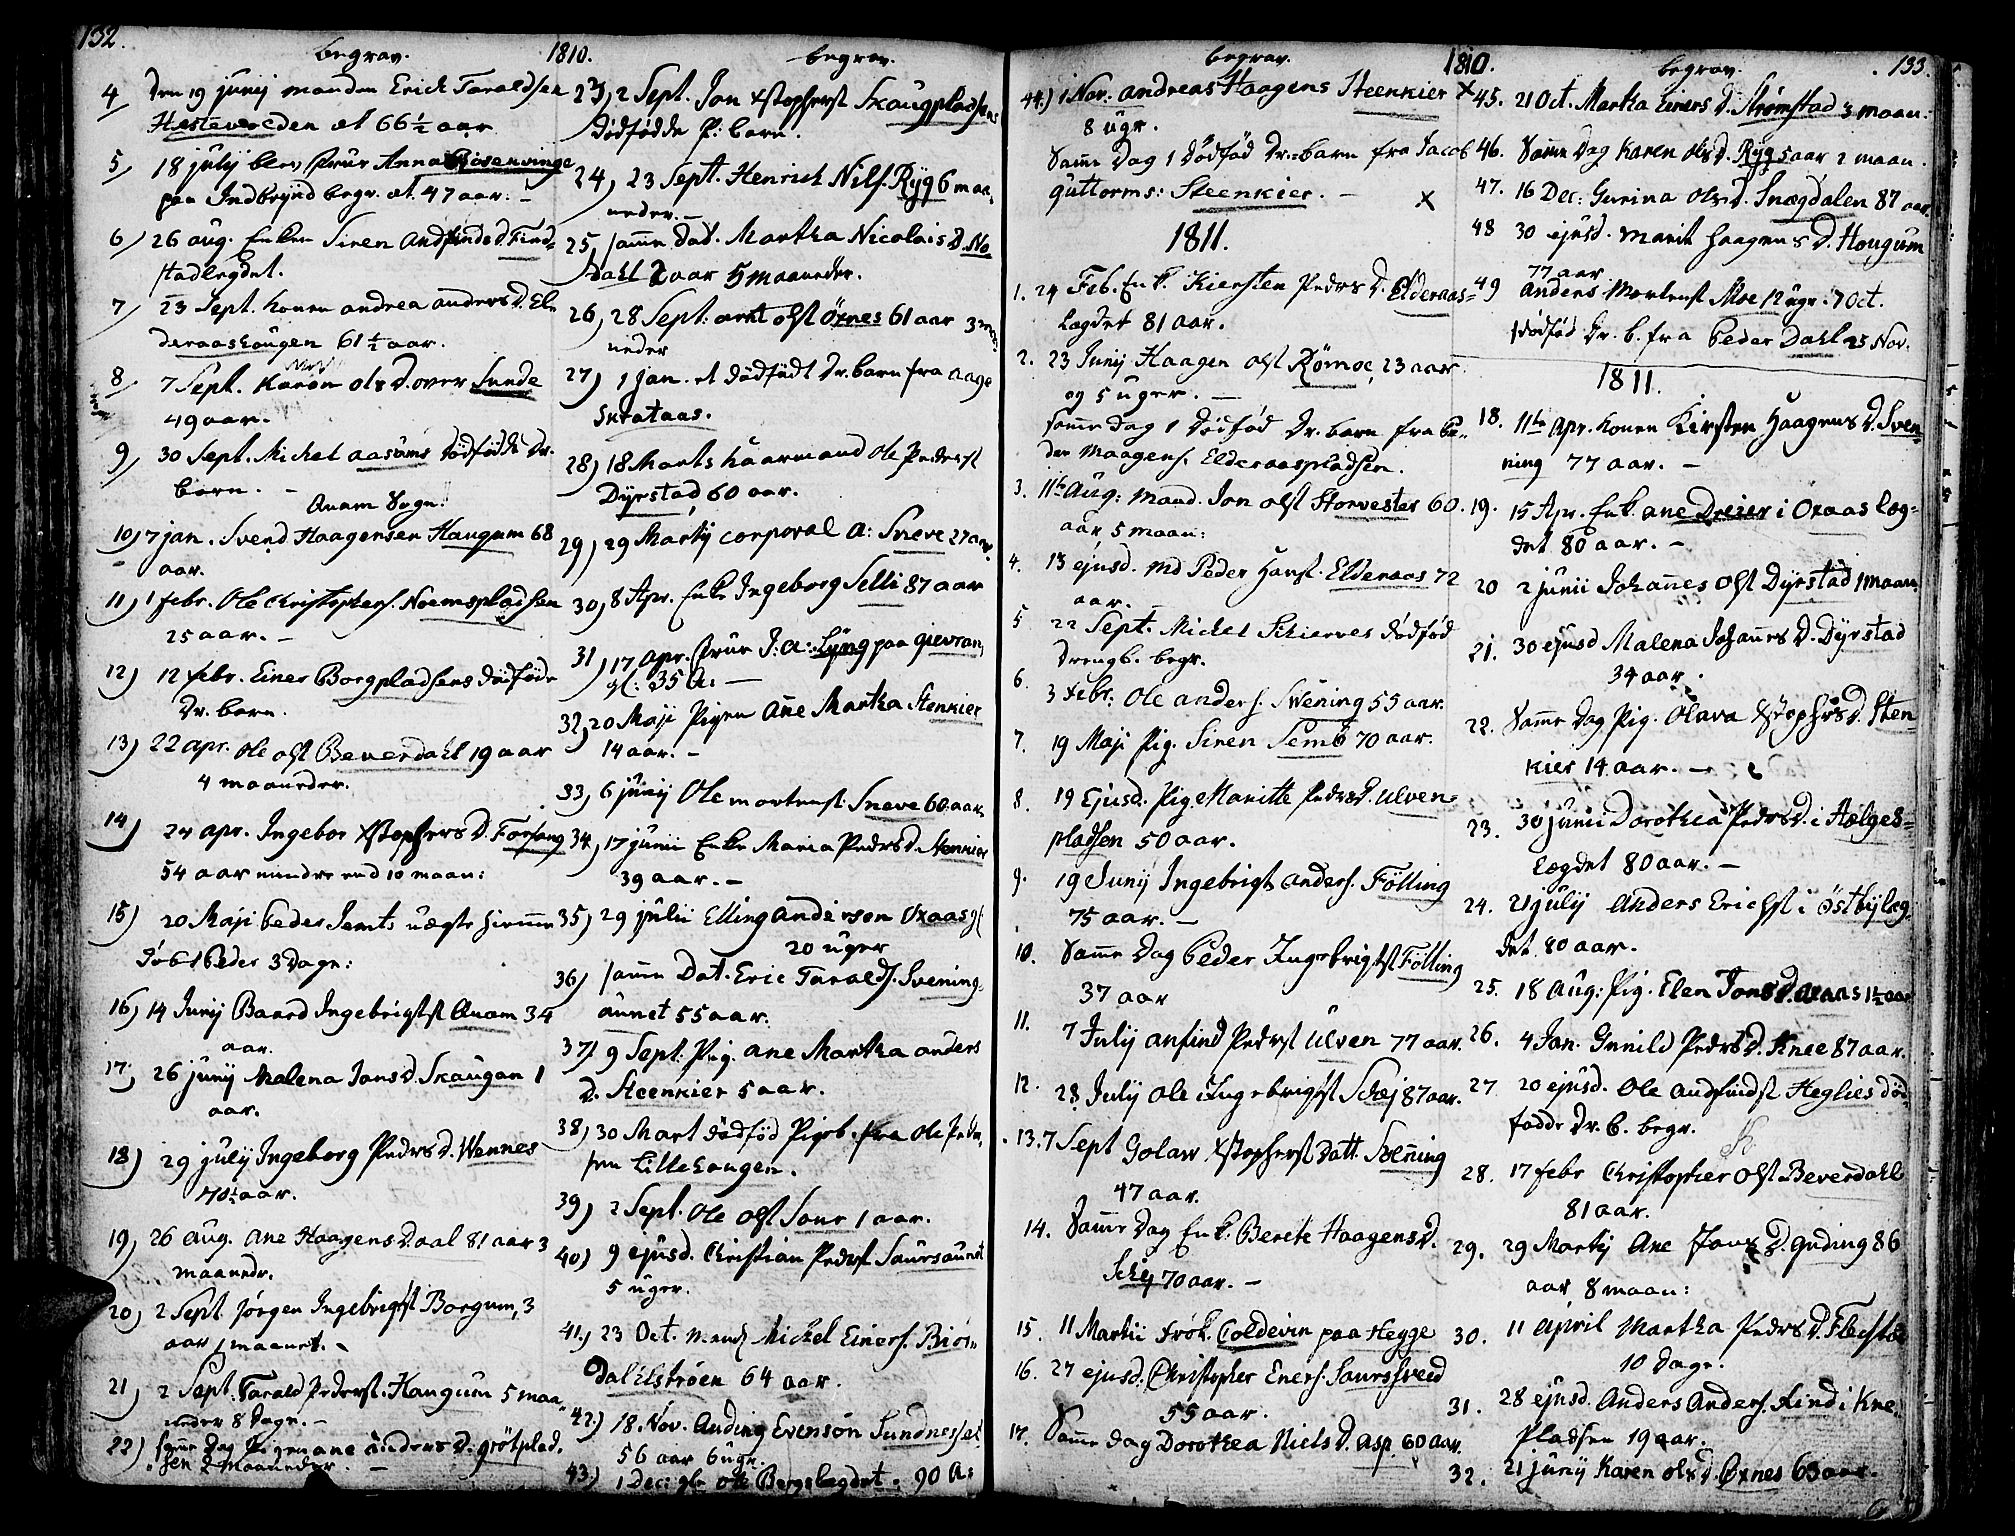 132.
begrav. 1810. begrav.
4 den 19 junij manden Erich Taraldsen
Hestevereden et 66 1/2 aar
5/ 18 julij blev frue Anna Rosenvinge
paa Indbrynd begr. æt. 47 aar. -
6/ 26 aug. Enken Siren Andfinds D. Find-
stadlegdet.
7/ 23 Sept. konen andrea anders D. El-
deraashaugen 61 1/2 aar.
8/ 7 Sept. Karen ols D. over Sunde
49 aar.
9/ 30 Sept. Michel aasams dödfödde Dr.
barn. -
Qvam Sogn.
10) 7 jan. Svend Haagensen Haugum 68
aar.
11) 1 febr. Ole Christophers. Noemspladsen
25 aar. -
12) 12 febr. Einer Borgpladsens dödföde
Dr. barn.
13) 22 apr. ole olst Beverdahl 19 aar
4 maaneder.
14) 24 apr. Ingebor Xstophers D. Forsang
54 aar mindre end 10 maan:
15) 20 Maji Peder Semts uægte
Peder 3 Dage:
16) 14 Junij Baard Ingebrigtst Qvam 34
aar.
17) 26 junij Malena Jons D. Skaugan 1
aar.
18) 29 julij Ingeborg Peders D. Wennes
70 1/2 aar.
19) 26 aug. ane Haagens D. aal 81 aar 3
maaneder.
20) 2 Sept. Jørgen Ingebrigtst Borgum, 3
aar 1 maanet. -
21) 2 Sept. Tarald Pederst. Haugum 5 maa-
neder 8 Dage. -
22) samme Dag Pigen ane anders D. grötplad-
sen 2 maaneder. -
23) 2 Sept. Jon Xstopherst Skaugpladsens
dödfödde P: barn.
24) 23 Sept. Henrich Nilss. Ryg 6 maa-
neder. -
25) samme Dat. Martha Nicolais D. No-
dahl 2 aar 5 maaneder.
26) 28 Sept: arnt olst öxnes 61 aar 3 maa-
neder
27) 1 jan. et dödfödt Dr. barn fra aage
Skrataas.
28) 18 Marts haarmand Ole Pederst
Dyrstad, 60 aar.
29) 29 Martij corporal A: Sneve 27 aar.
30) 8 Apr. Enke Ingeborg Selli 87 aar
31) 17 apr. frue J: A: Lyng paa gievran,
gl: 35 A: -
32) 20 Maji Pigen Ane Martha Stenkier
14 aar. -
33) 6 junij Ole mortenst Sneve 60 aar.
34) 17 junii Enke Maria Peders D. Stenkier
39 aar. -
35) 29 julii Elling anderson Oxaas gl
20 uger
36) samme Dat. Eric Taralds. Svening-
aunet 55 aar.
37) 9 Sept. Pig. ane Martha anders
D. Steenkier 5 aar.
38) 30 Mart dödfød Pigeb. fra Ole Peder-
sen Lillehaugen.
39) 2 Sept. Ole Olst Saur 1 aar.
40) 9 ejusd. Christian Pederst Saursaunet
5 uger.
41.) 23 Oct. mand Mickel Einers. Biør-
dal Elstrøen 64 aar.
42.) 18. Nov. Auding Evenson Sundnes
56 aar 6 uger.
43.) 1 Dec: Bergslegdet. 90 A:
begrav. 1810. begrav. 133.
44.) 1 Nov. andreas Haagens Steenkier X
8 ugr.
Samme Dag 1 dödfød Dr. barn fra Jacob
guttorms: Steenkier. - X
1811.
1. 24 Feb. Enk. Kiersten Peders D. Elderaas-
lægdet 81 aar.
2. 23 Junij Haagen olst Römoe, 23 aar
og 5 uger. -
samme Dag 1 dödfød Dr. barn fra Pe-
der Maagens. Elderaaspladsen.
3. 11te Aug: mand. Jon olst Storvester 60
aar 5 maan:
4. 13 ejusd. md Peder Hanst. Elderaas 72
aar. -
5 22 Sept. Michel Schierves dödfød
Drengb. begr.
6. 3 Febr: Ole anders. Swening 55 aar.
7. 19 Maji Pig. Siren Semb 70 aar.
8. 19 Ejusd. Pig Maritte Peders D. Ulven-
pladsen 50 aar.
9. 19 Junij Ingebrigt anders. Fölling
75 aar. -
10. Samme Dag Peder Ingebrigtst Fölling
37 aar
11. 7 Julij anfind Pederst Ulven 77 aar.
12. 28 Julij Ole Ingebrigtst Schej 87 aar.
13. 7 Sept Golaw Xstopherst datt. Svening
47 aar.
14. Samme Dag Enk. Berete Haagens D.
Schej 70 aar. -
15. 11 Martii frøk. Coldevin paa Hegge
16. 27 ejusd. Christopher Eners. Saurssveed
55 aar.
17. Samme dag Dorothea Niels D. asp. 60 aar.
45. 21 Oct. Martha Einers D. Strømstad 3 maan.
46. Samme Dag Karen ols D. Ryg 5 aar 2 maan.
47. 16 Dec: Gurina Ols D. Snægdalen 87 aar.
48 30 ejusd. Marit Haagens D. Hougum
77 aar
49 Anders Mortenst Moe 12 ugr: 7 Oct.
1 dödfød Dr. b. fra Peder Dahl 25 Nov.
1811.
18. 11te Apr. konen Kirsten Haagens D. Sven-
ning 77 aar. -
19. 15 Apr. Enk. ane Dreier i Oxaas læg-
det 80 aar. -
20 2 junii Johannes Olst Dyrstad 1 maan.
21. 30 ejusd Malena Johannes D. Dyrstad
34 aar.
22. Samme Dag Pig. Olava Xstophers D. Sten-
kier 14 aar. -
23. 30 junii Dorothea Peders D. i Hælges-
lægdet 80 aar. -
24. 21 julij Anders Erichst i Östbylæg-
det. 80 aar.
25. 18 Aug: Pig. Elen Jons D. oxaas 1 1/2 aar
26. 4 Jan. Gunild Peders D. Knee 87 aar.
27 20 ejusd. Ole Andfindst Heglies död-
fødde Dr. b. begr.
28. 17 febr Christopher Olst Beverdahl
81 aar.
29. 29 Martij Ane Jons D. Guding 86
aar 8 maan:
30. 11 April Martha Peders D.
10 Dage.
31. 28 ejusd. Anders Anders. Lind i Kne-
pladsen 19 aar.
32. 21 junij Karen ols D. Øxnes 63 aar.